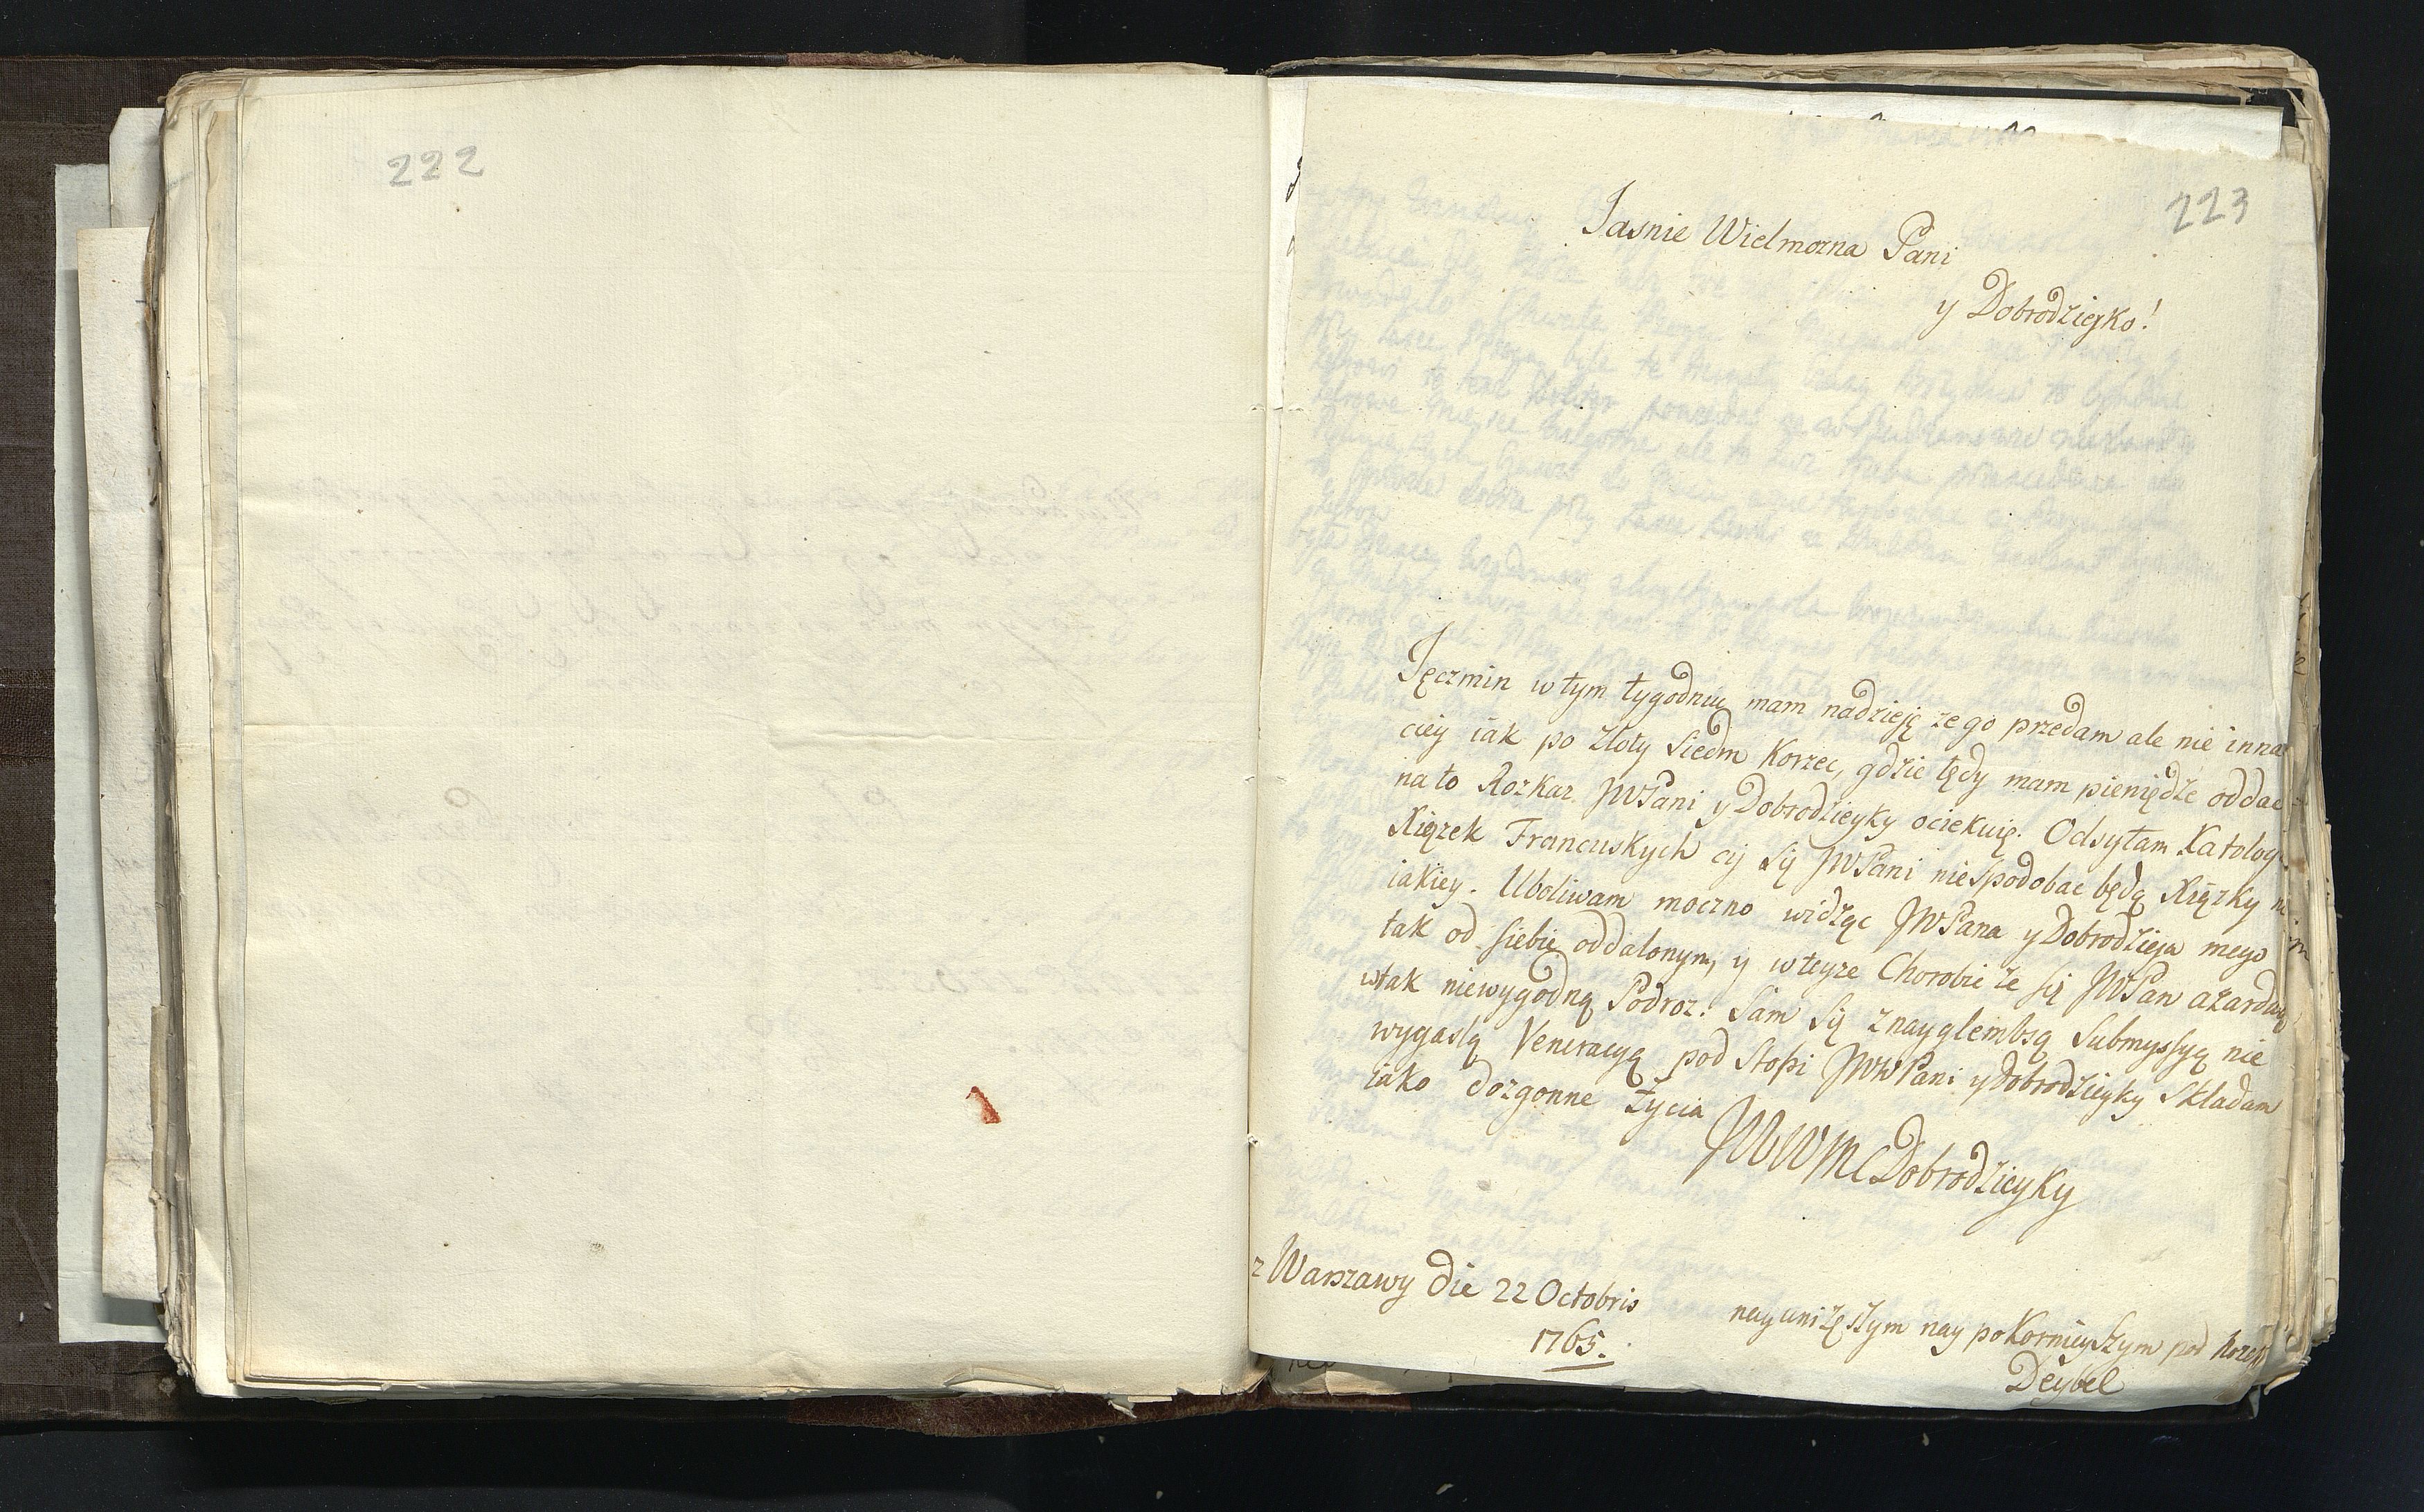 222
223
Jasnie Wielmozna Pani
y Dobrodzieyko!
Jęczmin w tym tygodniu mam nadzieję ze go przedam ale nie inna
ciey iak po Złoty Siedm Korzec, gdzie tędy mam pieniędze oddac
na to Rozkaz JWPani y Dobrodzieyky oczekuię. Odsyłam Katolog
Xięzek Francuskych cij się JWPani nie spodobac będą Xięzky
iakiey. Uboliwam moczno widząc JWPana y Dobrodzieja mego
tak od siebie oddalonym, y w teyze Chorobie ze się JWPan azarduą
w tak niewygodną Podroz. Sam się z nayglembsą Submyssyą nie
wygasłą Veneracyą pod Stopi JWWPani y Dobrodzieyky Składam
iako dozgonne życia
JWWMC Dobrodzieyky
z Warszawy Die 22 Octobris
1765.
nayuniżęszym nay pokornieyszym pod
Deybel